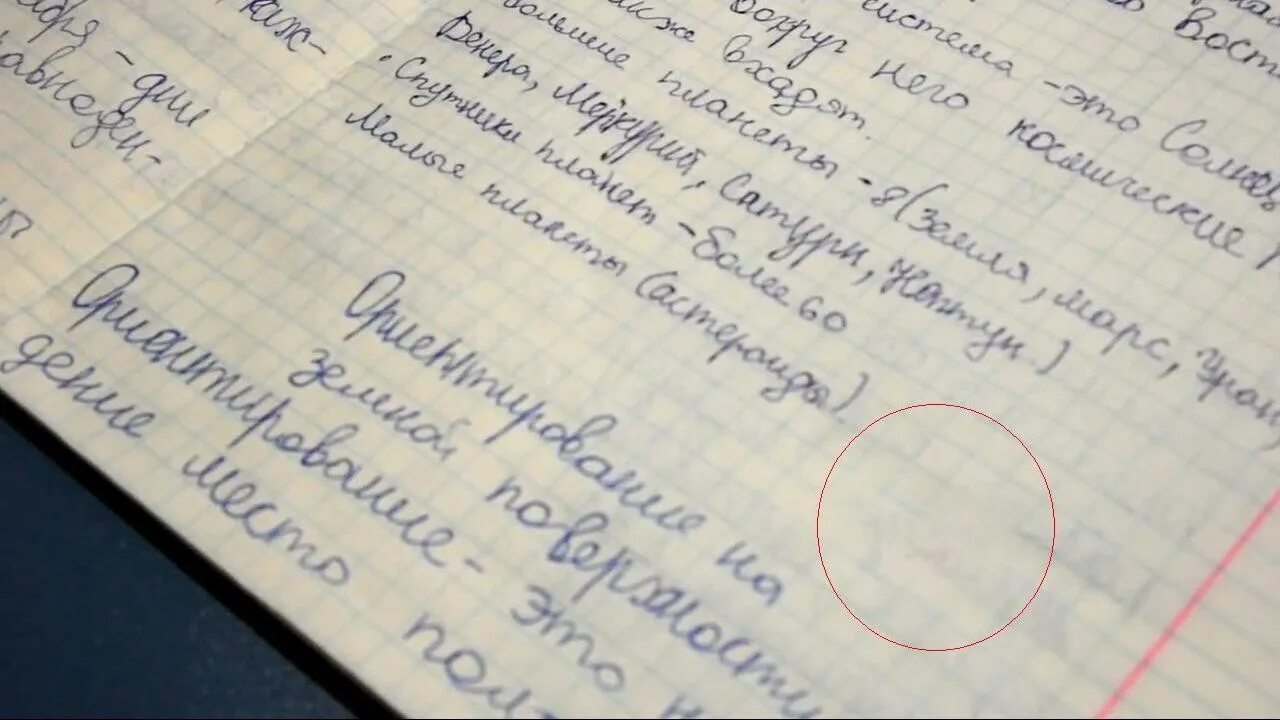 каж-
бря - дни
авноден-
Вост
система - это Солнец
вокруг него космические
акже входят.
большие планеты - 8 (Земля, Марс, Уран,
Венера, Меркурий, Сатурн, Нептун.)
• Спутники планет - более 60
Малые планеты (астероиды).
Ориентирование на
земной поверхности
Ориантирование - это н
дение место пол-